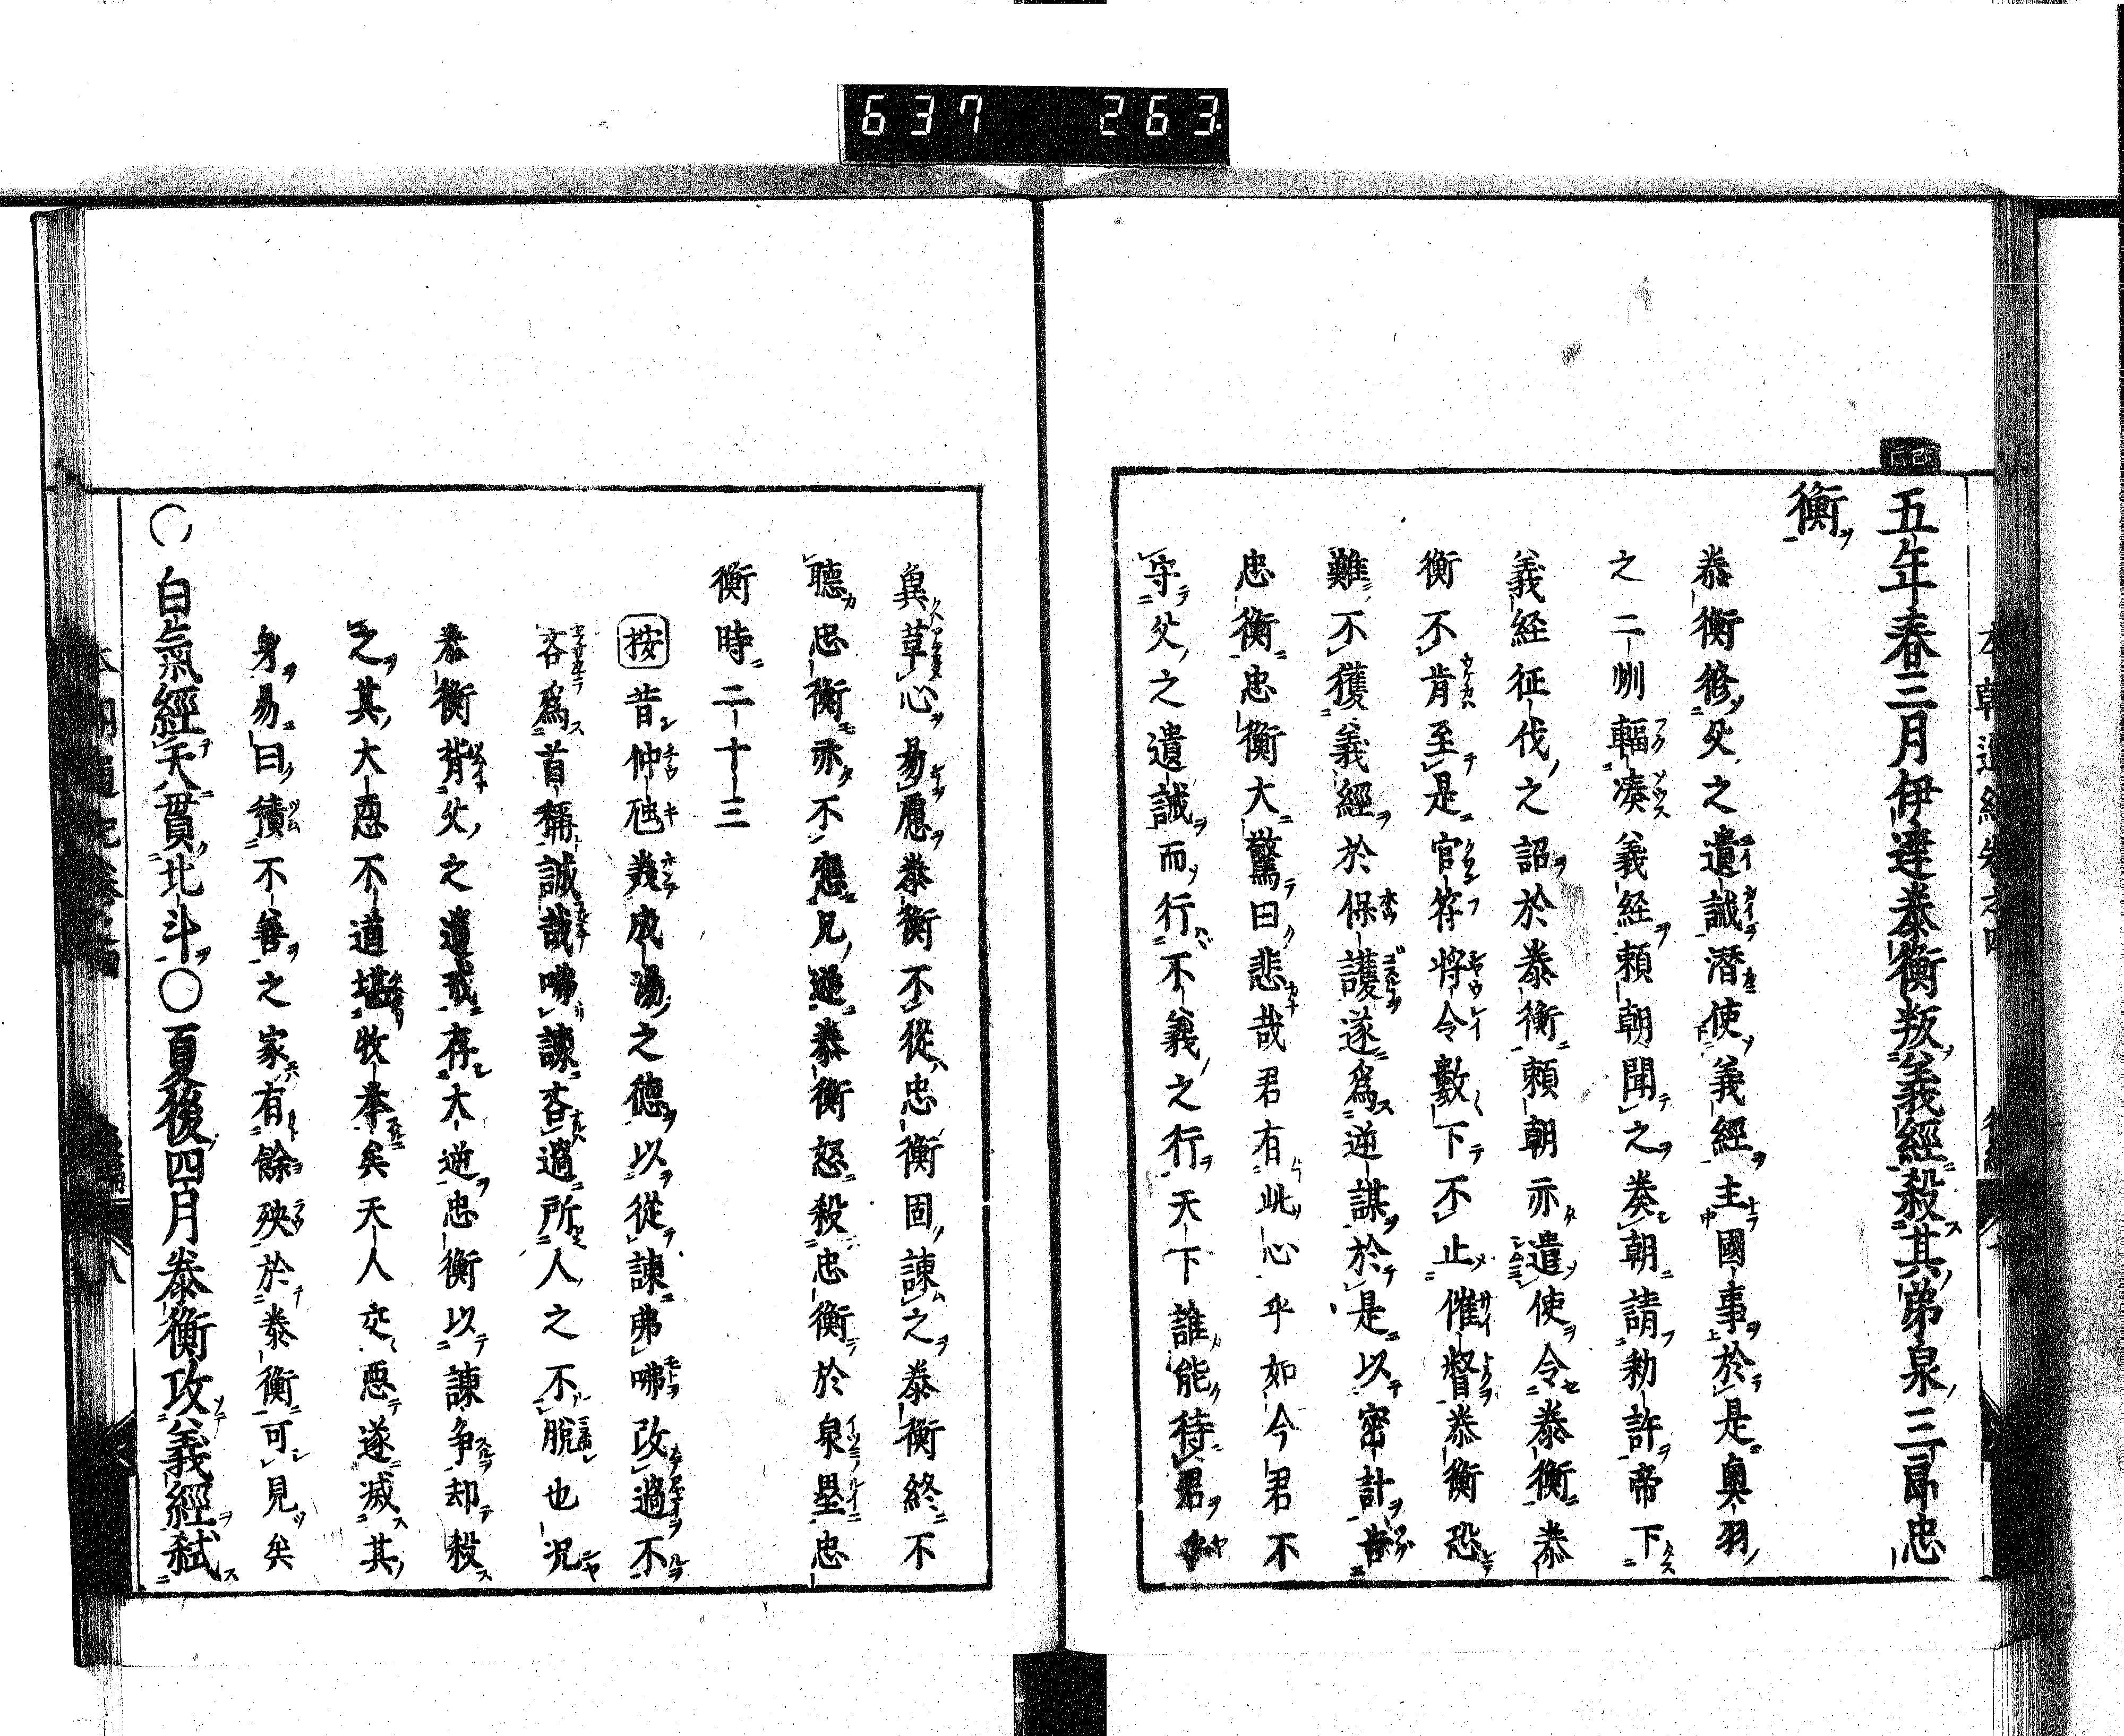 637 263
五年春三月伊達泰衡叛義經殺其弟泉三郎忠
衡
泰衡修父之遺誡潛使義經主國事於是奧羽
之二州輻湊義経頼朝聞之奏朝請勅許帝下
義経征伐之詔於泰衡頼朝亦遣使令泰衡泰
衡不肯至是官符將令數下不止催督泰衡恐
難不獲義經於保護遂爲逆謀於是以密計告
忠衡忠衡大驚曰悲哉君有此心乎如今君不
守父之遺誡而行不義之行天下誰能待君
兾草心易慮泰衡不従忠衡固諌之泰衡終不
聽忠衡亦不應兄逆泰衡怒殺忠衡於泉壘忠
衡時二十三
按昔仲虺美成湯之德以從諌弗咈改過不
吝爲首稱誠哉咈諌吝過所人之不脫也况
泰衡背父之遺戒存大逆忠衡以諌争却殺
之其大惡不道堪收拳矣天人交惡遂滅其
身易曰積不善之家有餘殃於泰衡可見矣
〇白氣經天貫北斗〇夏後四月泰衡攻義經弑